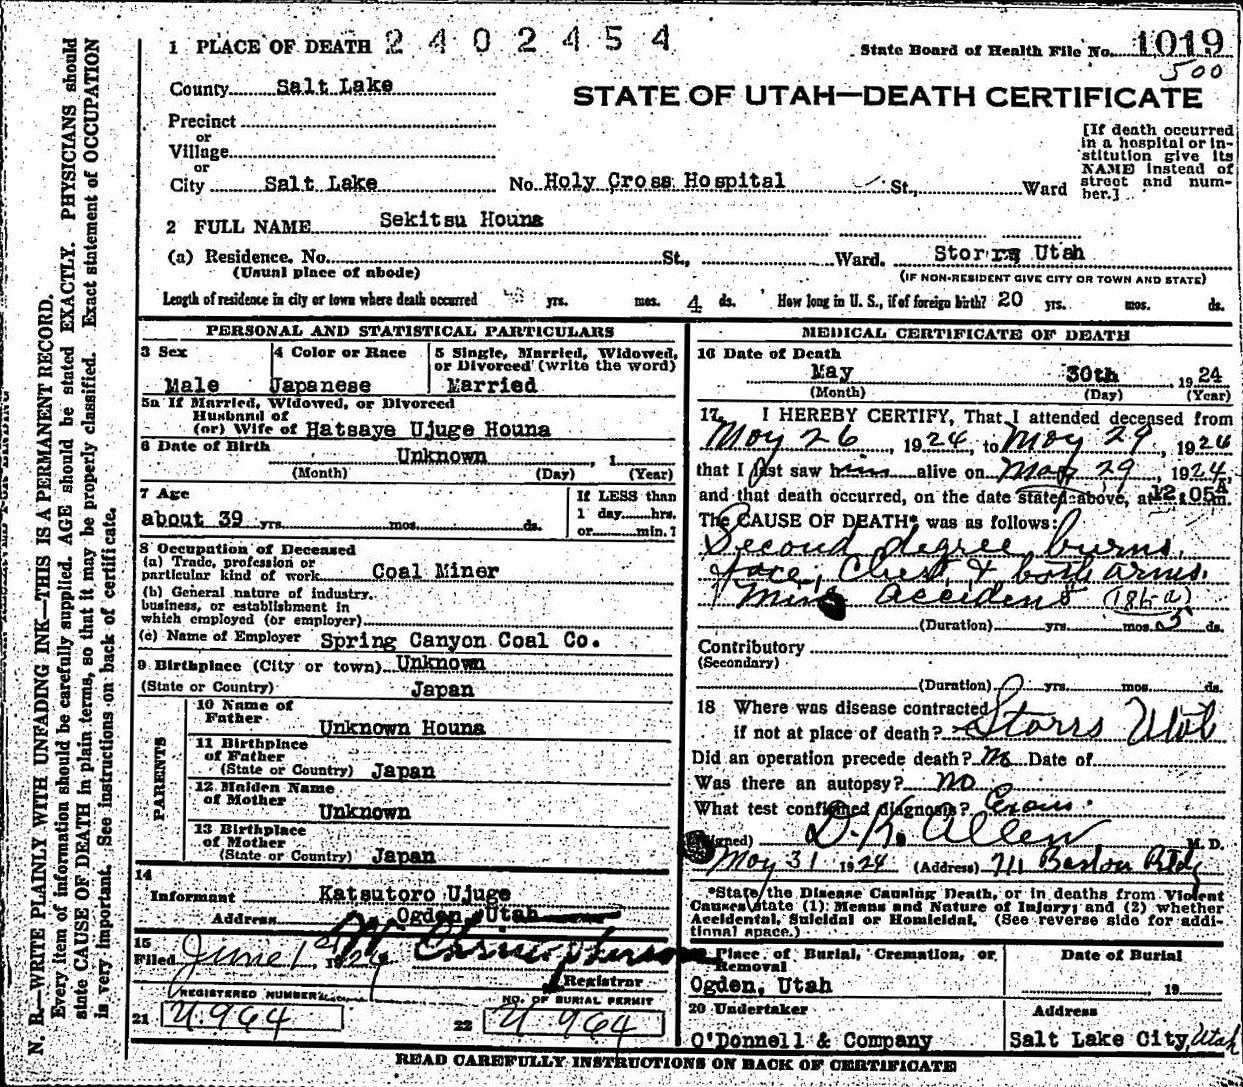 1 PLACE OF DEATH 2402454
State Board of Health File No. 1019
500
County Salt Lake
STATE OF UTAH—DEATH CERTIFICATE
Precinct
or
Village
or
City Salt Lake No. Holy Cross Hospital St., Ward
[If death occurred in a hospital or institution give its NAME instead of street and number.]
2 FULL NAME Sekitsu Houna
(a) Residence. No. St., Ward. Storrs Utah
(Usual place of abode) (IF NON-RESIDENT GIVE CITY OR TOWN AND STATE)
Length of residence in city or town where death occurred yrs. mos. 4 ds. How long in U. S., if of foreign birth? 20 yrs. mos. ds.
PERSONAL AND STATISTICAL PARTICULARS
3 Sex
Male
4 Color or Race
Japanese
5 Single, Married, Widowed,
or Divorced (write the word)
Married
5a If Married, Widowed, or Divorced
Husband of
(or) Wife of Hatsaye Ujuge Houna
6 Date of Birth Unknown , 1
(Month) (Day) (Year)
7 Age
about 39 yrs. mos. ds.
If LESS than
1 day hrs.
or min.?
8 Occupation of Deceased
(a) Trade, profession or
particular kind of work Coal Miner
(b) General nature of industry,
business, or establishment in
which employed (or employer)
(c) Name of Employer Spring Canyon Coal Co.
9 Birthplace (City or town) Unknown
(State or Country) Japan
PARENTS
10 Name of
Father Unknown Houna
11 Birthplace
of Father
(State or Country) Japan
12 Maiden Name
of Mother
Unknown
13 Birthplace
of Mother
(State or Country) Japan
14
Informant Katsutoro Ujuge
Address Ogden, Utah
15
Filed June 1, 1924 W Christopherson
Registrar
REGISTERED NUMBER
21 U.964
NO. OF BURIAL PERMIT
22 U 964
MEDICAL CERTIFICATE OF DEATH
16 Date of Death
May 30th , 1924
(Month) (Day) (Year)
17. I HEREBY CERTIFY, That I attended deceased from
May 26, 1924, to May 29, 1924
that I last saw him alive on May 29, 1924,
and that death occurred, on the date stated above, at 12:05 A m.
The CAUSE OF DEATH* was as follows:
Second degree burns.
face, Chest, & both arms.
Mine accident (186-a)
(Duration) yrs. mos. 5 ds.
Contributory
(Secondary)
(Duration) yrs. mos. ds.
18 Where was disease contracted
if not at place of death? Storrs Utah
Did an operation precede death? No Date of
Was there an autopsy? no
What test confirmed diagnosis?
(Signed) D. K. Allen M. D.
May 31 1924 (Address) 711 Boston Bldg
*State the Disease Causing Death, or in deaths from Violent
Causes state (1) Means and Nature of Injury; and (2) whether
Accidental, Suicidal or Homicidal. (See reverse side for additional space.)
Place of Burial, Cremation, or
Removal
Ogden, Utah
Date of Burial
, 19
20 Undertaker
O'Donnell & Company
Address
Salt Lake City, Utah
READ CAREFULLY INSTRUCTIONS ON BACK OF CERTIFICATE
N. B.—WRITE PLAINLY WITH UNFADING INK—THIS IS A PERMANENT RECORD.
Every item of information should be carefully supplied. AGE should be stated EXACTLY. PHYSICIANS should
state CAUSE OF DEATH in plain terms, so that it may be properly classified. Exact statement of OCCUPATION
is very important. See instructions on back of certificate.